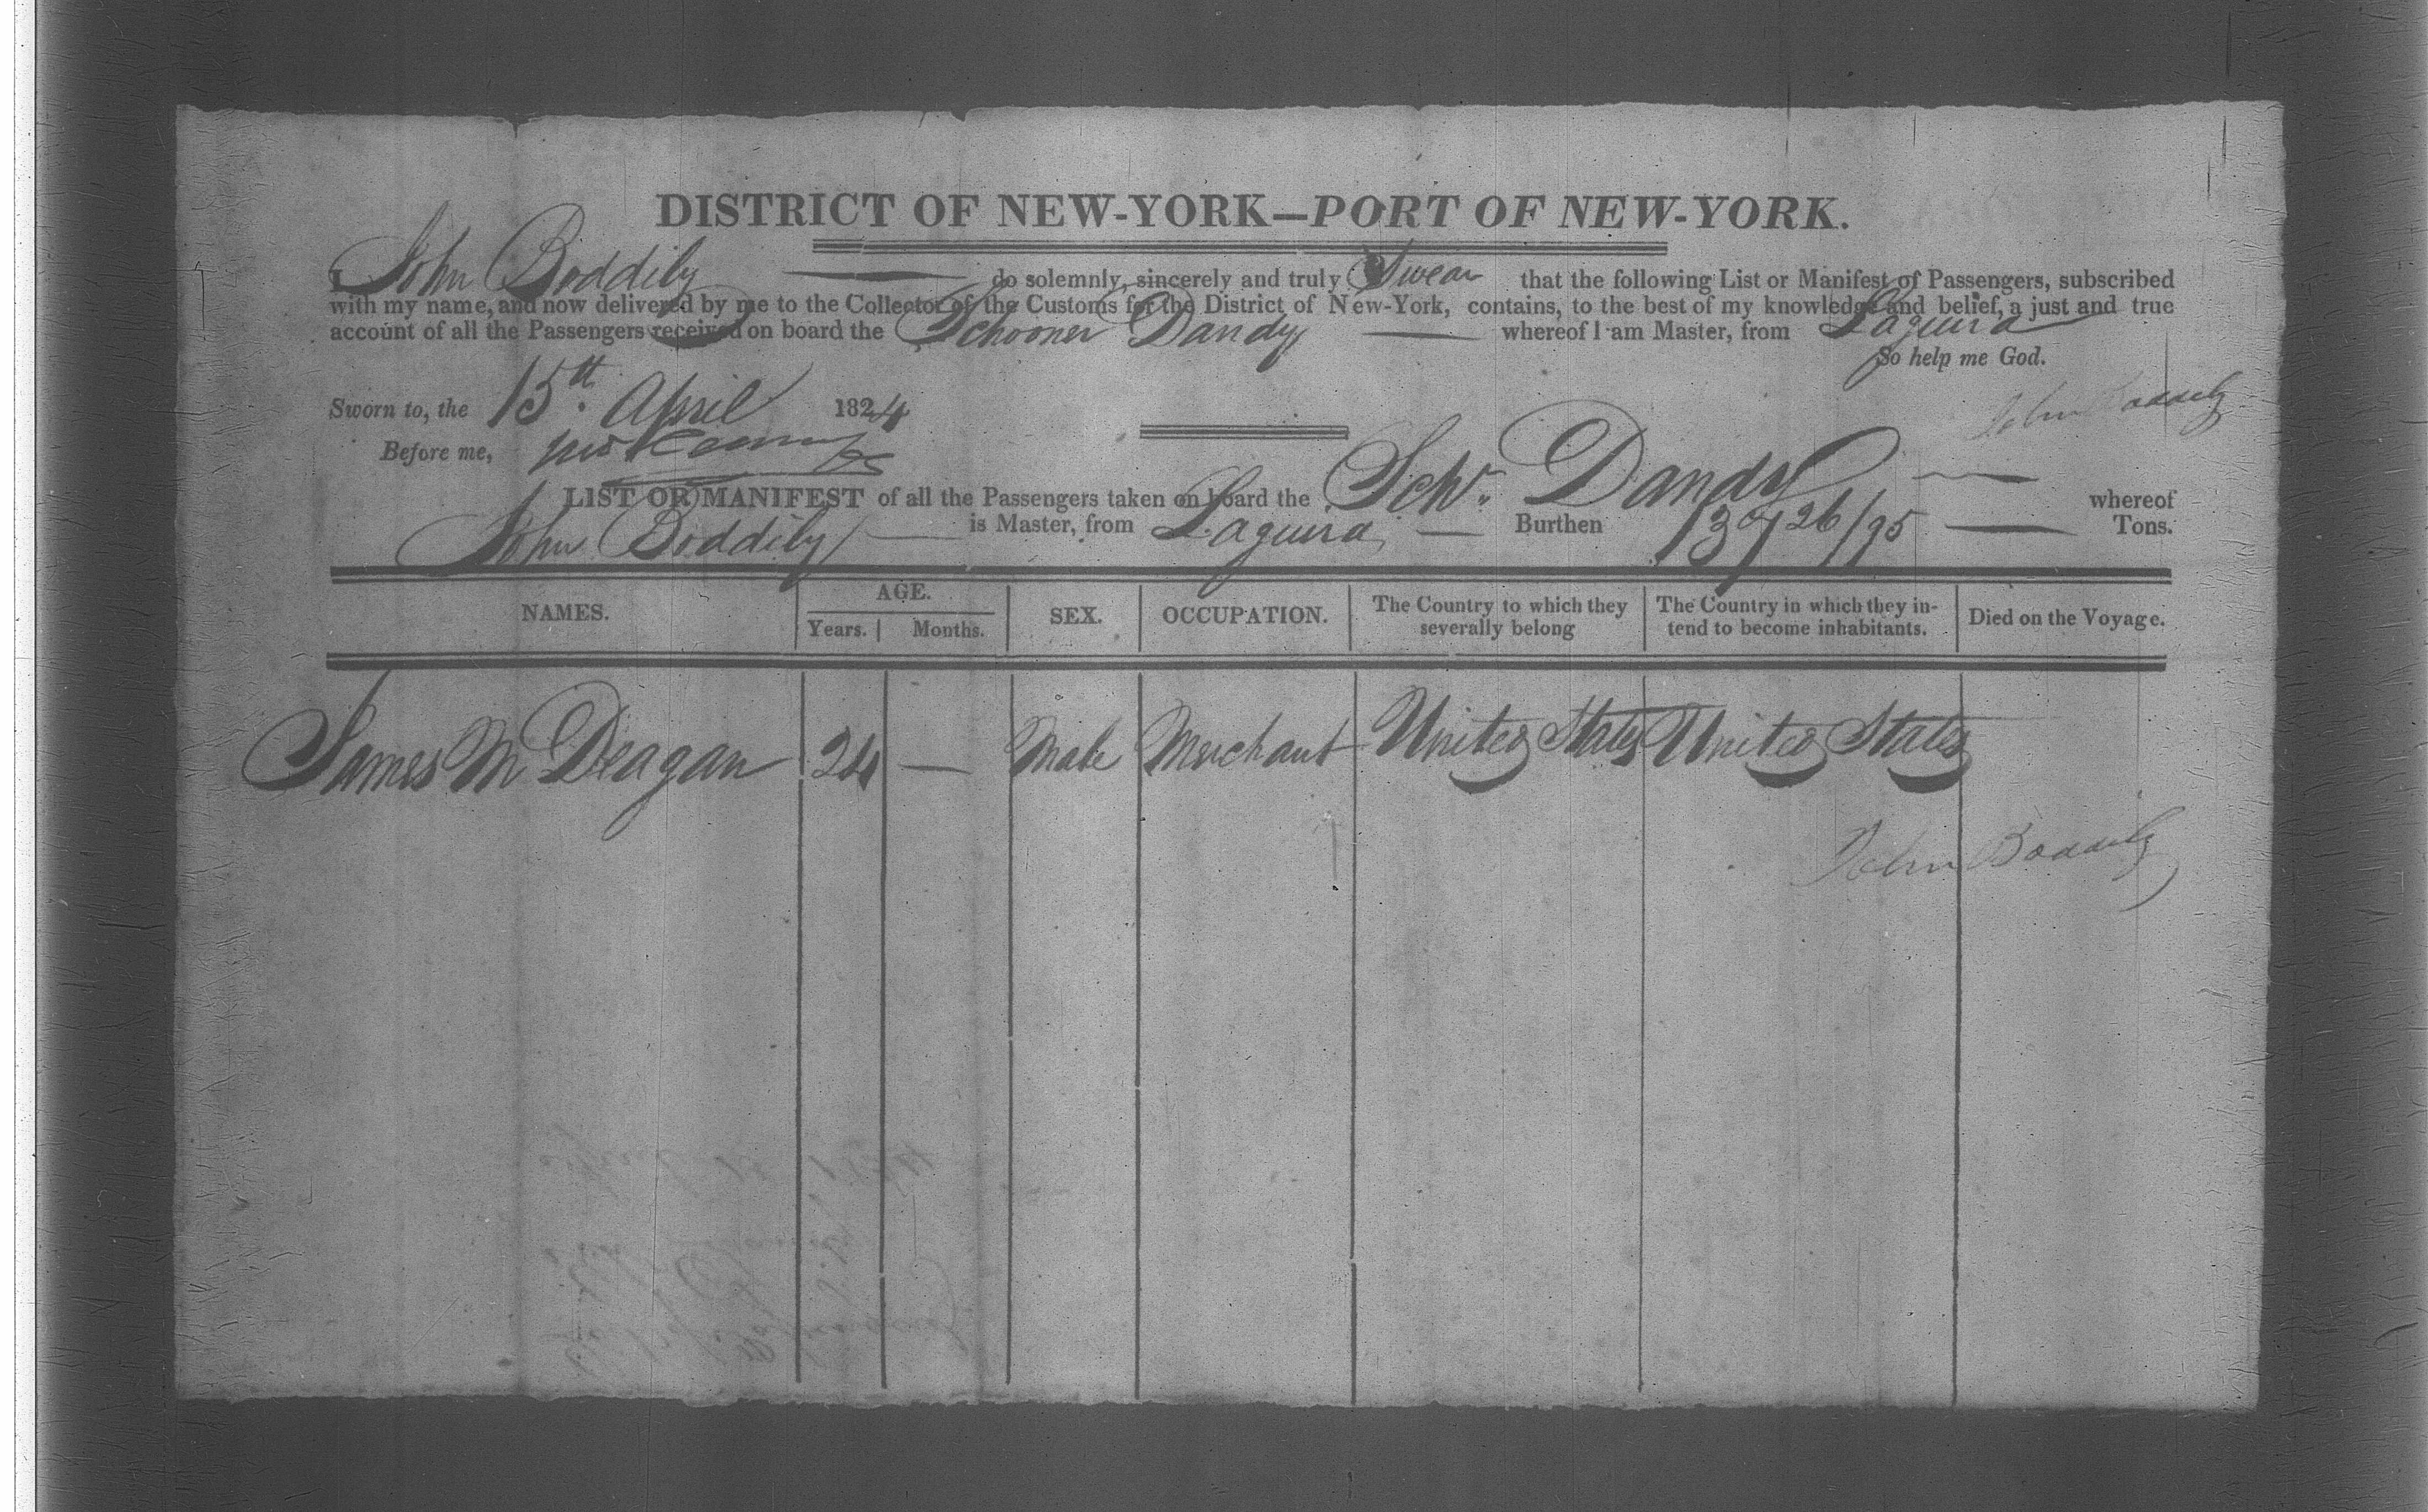 DISTRICT OF NEW-YORK—PORT OF NEW-YORK.
I John Boddily do solemnly, sincerely and truly Swear that the following List or Manifest of Passengers, subscribed
with my name, and now delivered by me to the Collector of the Customs for the District of New-York, contains, to the best of my knowledge and belief, a just and true
account of all the Passengers received on board the Schooner Dandy whereof I am Master, from Laguira
So help me God.
Sworn to, the 15th. April 1824
John Boddily
Before me,
LIST OR MANIFEST of all the Passengers taken on board the Schr. Dandy whereof
John Boddily is Master, from Laguira — Burthen 137 26/95 Tons.
NAMES. AGE. SEX. OCCUPATION. The Country to which they severally belong The Country in which they in-tend to become inhabitants. Died on the Voyage.
Years. Months.
James M Deagan 24 — Male Merchant United States United States
John Boddily